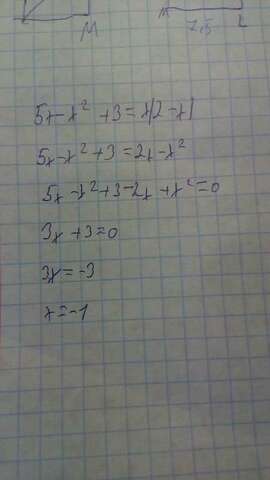 M
7,5 L
5x - x² + 3 = x(2 - x)
5x - x² + 3 = 2x - x²
5x - x² + 3 - 2x + x² = 0
3x + 3 = 0
3x = -3
x = -1